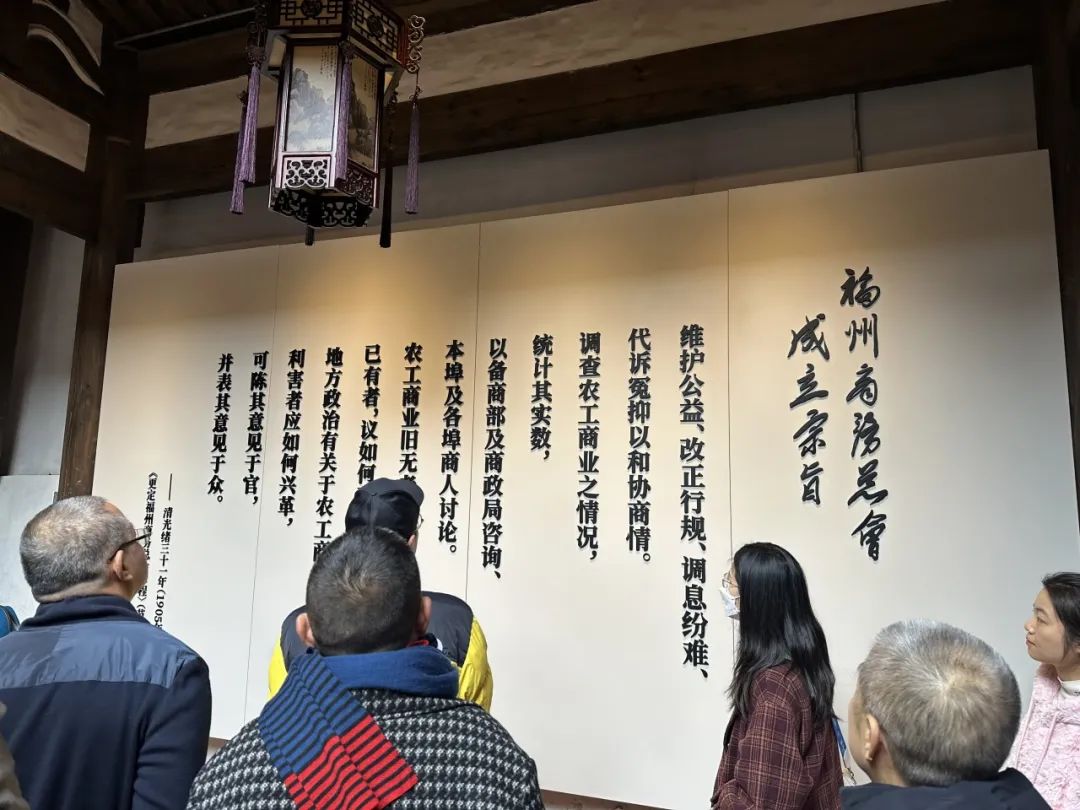 福州商务总會
成立宗旨
维护公益、改正行规、调息纷难、
代诉冤抑以和协商情。
调查农工商业之情况，
统计其实数，
以备商部及商政局咨询、
本埠及各埠商人讨论。
农工商业旧无
已有者，议如何
地方政治有关于农工商
利害者应如何兴革，
可陈其意见于官，
并表其意见于众。
—— 清光绪三十一年（1905
《更定福州商 程》（